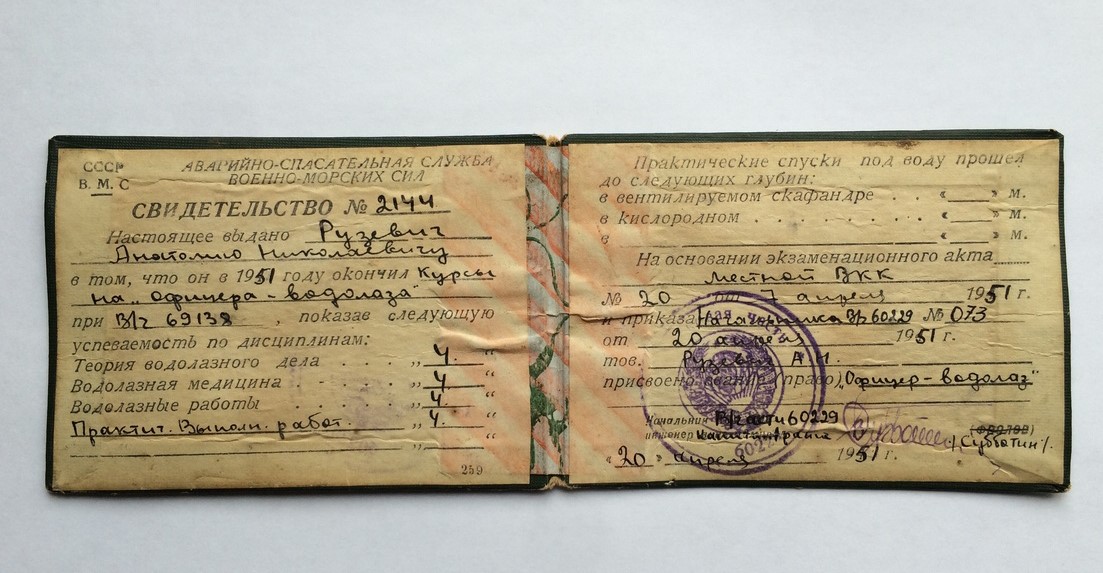 СССР
В. М. С
АВАРИЙНО-СПАСАТЕЛЬНАЯ СЛУЖБА
ВОЕННО-МОРСКИХ СИЛ
СВИДЕТЕЛЬСТВО № 2144
Настоящее выдано Рузевич
Анатолию Николаевичу
в том, что он в 1951 году окончил Курсы
на „офицера - водолаза"
при В/ч 69138, показав следующую
успеваемость по дисциплинам:
Теория водолазного дела . . . „ 4. "
Водолазная медицина - . . . . „ 4 "
Водолазные работы . . . . . „ 4. "
Практич. Выполн. работ. „ 4. "
"
259
Практические спуски под воду прошел
до следующих глубин:
в вентилируемом скафандре . . « » м.
в кислородном . . . . . . . . « » м.
в « » м.
На основании экзаменационного акта
местной ВКК
№ 20 7 апреля 1951 г.
и приказа Начальника В/ч 60229 № 073
от 20 апреля 1951 г.
тов. Рузевич А. Н.
присвоено звание (право) „Офицер - водолаз"
Начальник В/части 60229
инженер
(ФРОЛОВ)
/Субботин/.
„ 20 " апреля 1951 г.